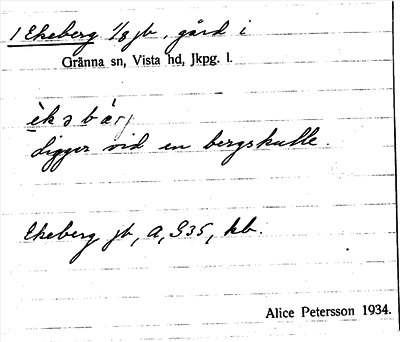 1 Ekeberg 1/8 jb, gård i
Gränna sn, Vista hd, Jkpg. l.
èksbàrj
ligger vid en bergskulle.
Ekeberg jb, A, G35, kb.
Alice Petersson 1934.